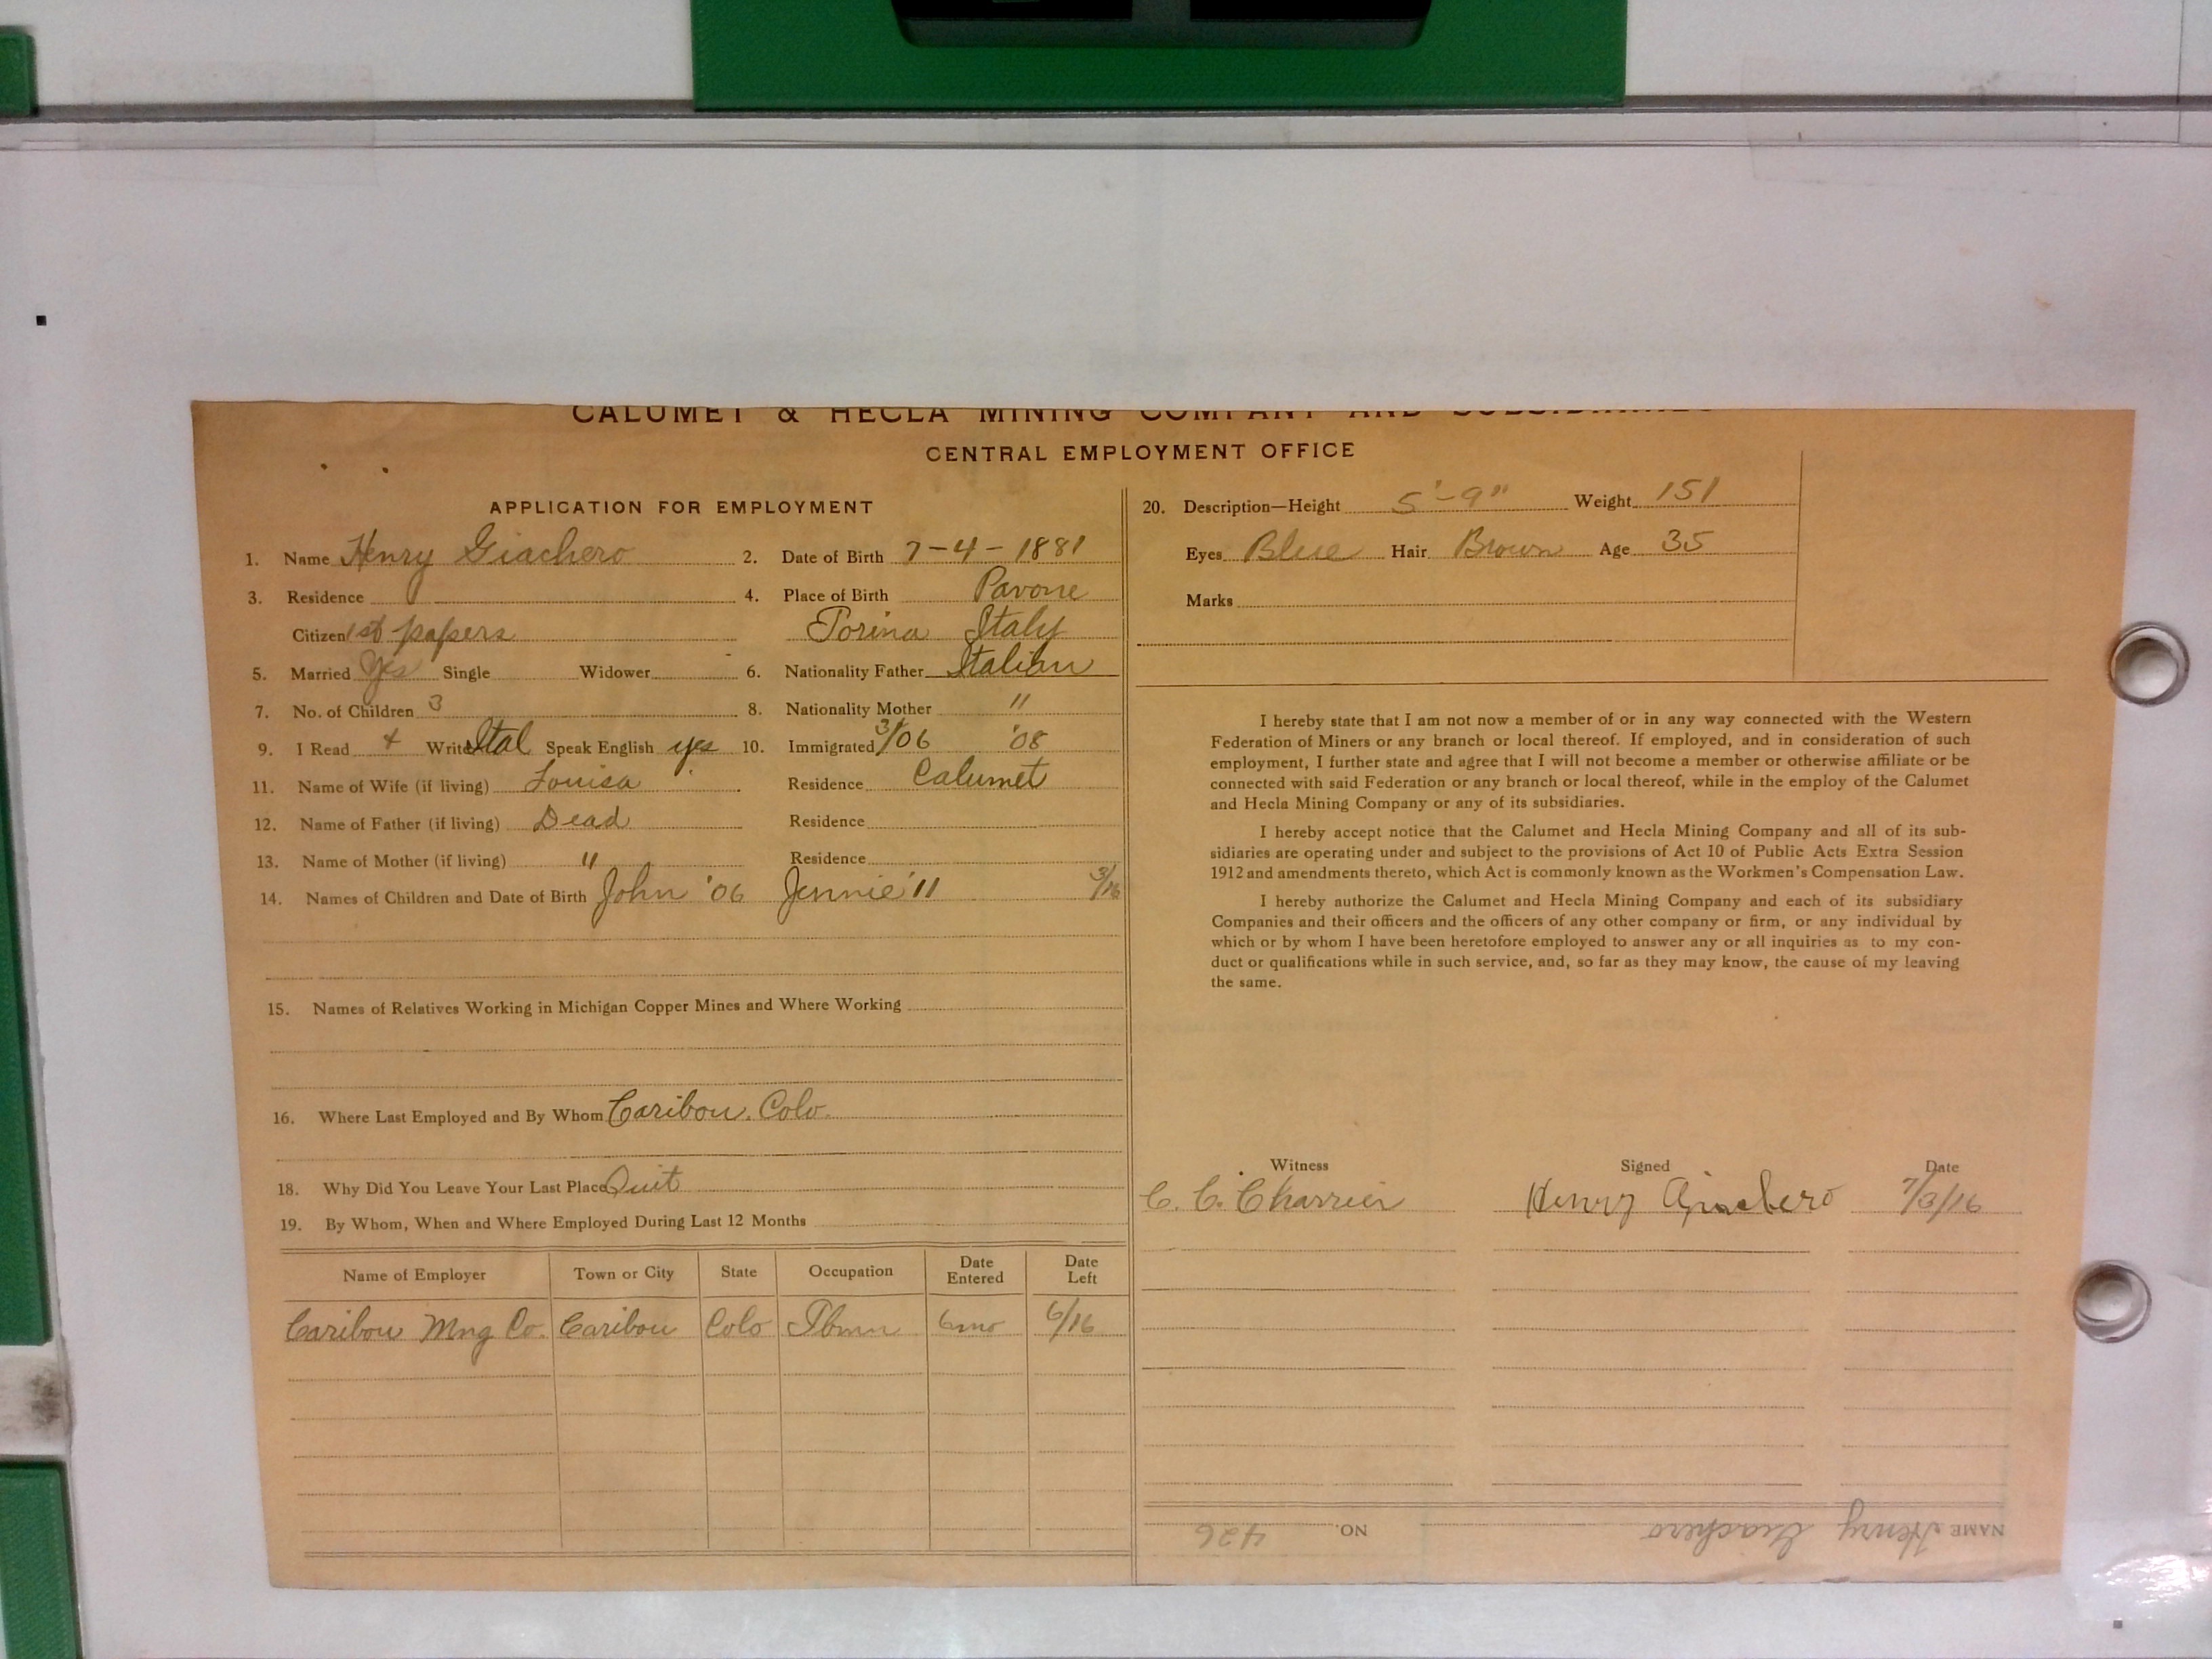 CALUMET & HECLA MINING COMPANY AND SUBSIDIARIES
CENTRAL EMPLOYMENT OFFICE
APPLICATION FOR EMPLOYMENT
1. Name Henry Giachero 2. Date of Birth 7-4-1881
3. Residence 4. Place of Birth Pavone
Citizen 1st papers Torina Italy
5. Married Yes Single Widower 6. Nationality Father Italian
7. No. of Children 3 8. Nationality Mother "
9. I Read + Write Ital Speak English yes 10. Immigrated 3/06 '08
11. Name of Wife (if living) Louisa Residence Calumet
12. Name of Father (if living) Dead Residence
13. Name of Mother (if living) " Residence
14. Names of Children and Date of Birth John '06 Jennie '11 3/16
15. Names of Relatives Working in Michigan Copper Mines and Where Working
16. Where Last Employed and By Whom Caribou. Colo.
18. Why Did You Leave Your Last Place Quit
19. By Whom, When and Where Employed During Last 12 Months
Name of Employer Town or City State Occupation Date Entered Date Left
Caribou Mng Co. Caribou Colo 6mo 6/16
20. Description—Height 5'-9" Weight 151
Eyes Blue Hair Brown Age 35
Marks
I hereby state that I am not now a member of or in any way connected with the Western
Federation of Miners or any branch or local thereof. If employed, and in consideration of such
employment, I further state and agree that I will not become a member or otherwise affiliate or be
connected with said Federation or any branch or local thereof, while in the employ of the Calumet
and Hecla Mining Company or any of its subsidiaries.
I hereby accept notice that the Calumet and Hecla Mining Company and all of its sub-
sidiaries are operating under and subject to the provisions of Act 10 of Public Acts Extra Session
1912 and amendments thereto, which Act is commonly known as the Workmen's Compensation Law.
I hereby authorize the Calumet and Hecla Mining Company and each of its subsidiary
Companies and their officers and the officers of any other company or firm, or any individual by
which or by whom I have been heretofore employed to answer any or all inquiries as to my con-
duct or qualifications while in such service, and, so far as they may know, the cause of my leaving
the same.
Witness Signed Date
C. C. Charrier Henry Giachero 7/3/16
NAME Henry Giachero NO. 426